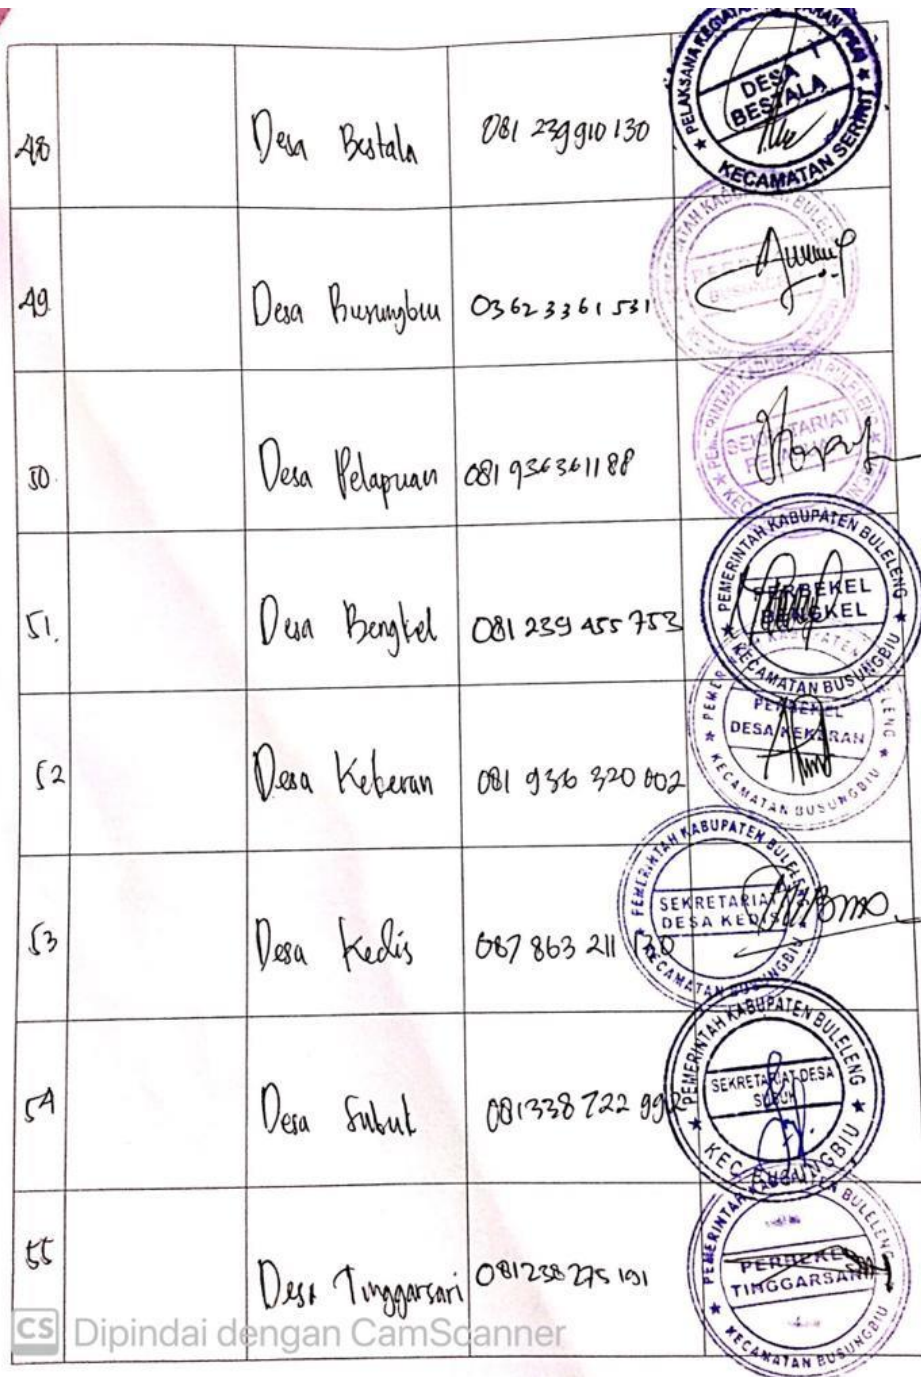 48 Desa Bestala 081 239 910 130
PELAKSANA KEGIATAN (PKA)
DESA
BESTALA
KECAMATAN SERIRIT
49. Desa Busungbiu 03623361531
50. Desa Pelapuan 081 936361188
SEKRETARIAT
51. Desa Bengkel 081 239 455 753
PEMERINTAH KABUPATEN BULELENG
PERBEKEL
BENGKEL
KECAMATAN BUSUNGBIU
52 Desa Kekeran 081 936 320 002
PERBEKEL
DESA KEKERAN
KECAMATAN BUSUNGBIU
53 Desa Kedis 087 863 211 120
PEMERINTAH KABUPATEN BULELENG
SEKRETARIAT
DESA KEDIS
KECAMATAN BUSUNGBIU
54 Desa Subuk 081338 722 992
PEMERINTAH KABUPATEN BULELENG
SEKRETARIAT DESA
SUBUK
KEC. BUSUNGBIU
55 Desa Tinggarsari 081238 275 191
PEMERINTAH KABUPATEN BULELENG
PERBEKEL
TINGGARSARI
KECAMATAN BUSUNGBIU
CS Dipindai dengan CamScanner